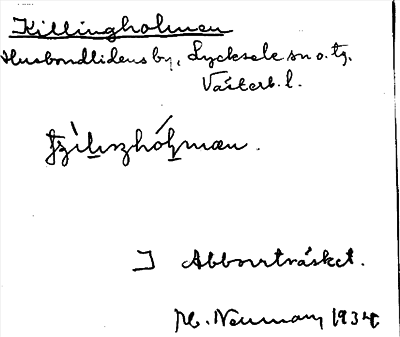 Killingholmen
Husbondlidens by, Lycksele sn o. tg.
Västerb. l.
I Abborrträsket.
Neumann 1934